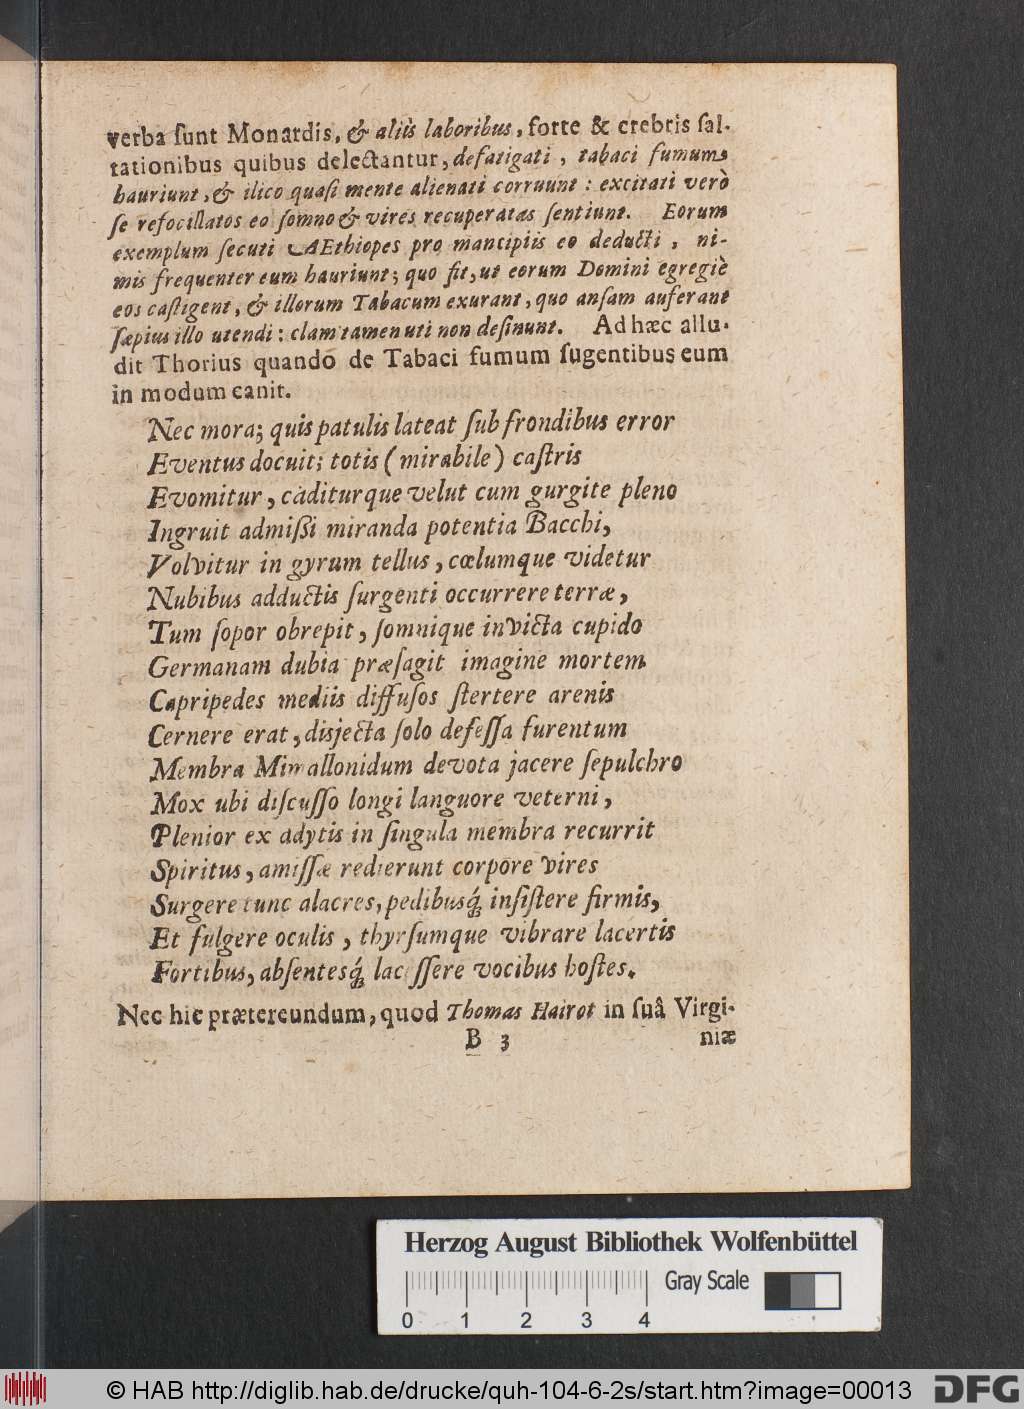 verba ſunt Monardis, & aliis laboribus, forte & crebris ſal-
tationibus quibus delectantur, defatigati, tabaci fumum
hauriunt, & ilico quaſi mente alienati corruunt : excitati verò
ſe refocillatos eo ſomno & vires recuperatas ſentiunt. Eorum
exemplum ſecuti AEthiopes pro mancipiis eo deducti, ni-
mis frequenter eum hauriunt; quo fit, ut eorum Domini egregiè
eos caſtigent, & illorum Tabacum exurant, quo anſam auferant
ſæpius illo utendi : clam tamen uti non deſinunt. Ad hæc allu-
dit Thorius quando de Tabaci fumum ſugentibus eum
in modum canit.
Nec mora; quis patulis lateat ſub frondibus error
Eventus docuit; totis (mirabile) caſtris
Evomitur, caditurque velut cum gurgite pleno
Ingruit admiſſi miranda potentia Bacchi,
Volvitur in gyrum tellus, cœlumque videtur
Nubibus adductis ſurgenti occurrere terræ,
Tum ſopor obrepit, ſomnique invicta cupido
Germanam dubia præſagit imagine mortem
Capripedes mediis diffuſos ſtertere arenis
Cernere erat, disjecta ſolo defeſſa furentum
Membra Mimallonidum devota jacere ſepulchro
Mox ubi diſcuſſo longi languore veterni,
Plenior ex adytis in ſingula membra recurrit
Spiritus, amiſſæ redierunt corpore vires
Surgere tunc alacres, pedibusq́; inſiſtere firmis,
Et fulgere oculis, thyrſumque vibrare lacertis
Fortibus, abſentesq́; laceſſere vocibus hoſtes.
Nec hic prætereundum, quod Thomas Hairot in ſuâ Virgi-
B 3 niæ
Herzog August Bibliothek Wolfenbüttel
Gray Scale
0 1 2 3 4
© HAB http://diglib.hab.de/drucke/quh-104-6-2s/start.htm?image=00013 DFG